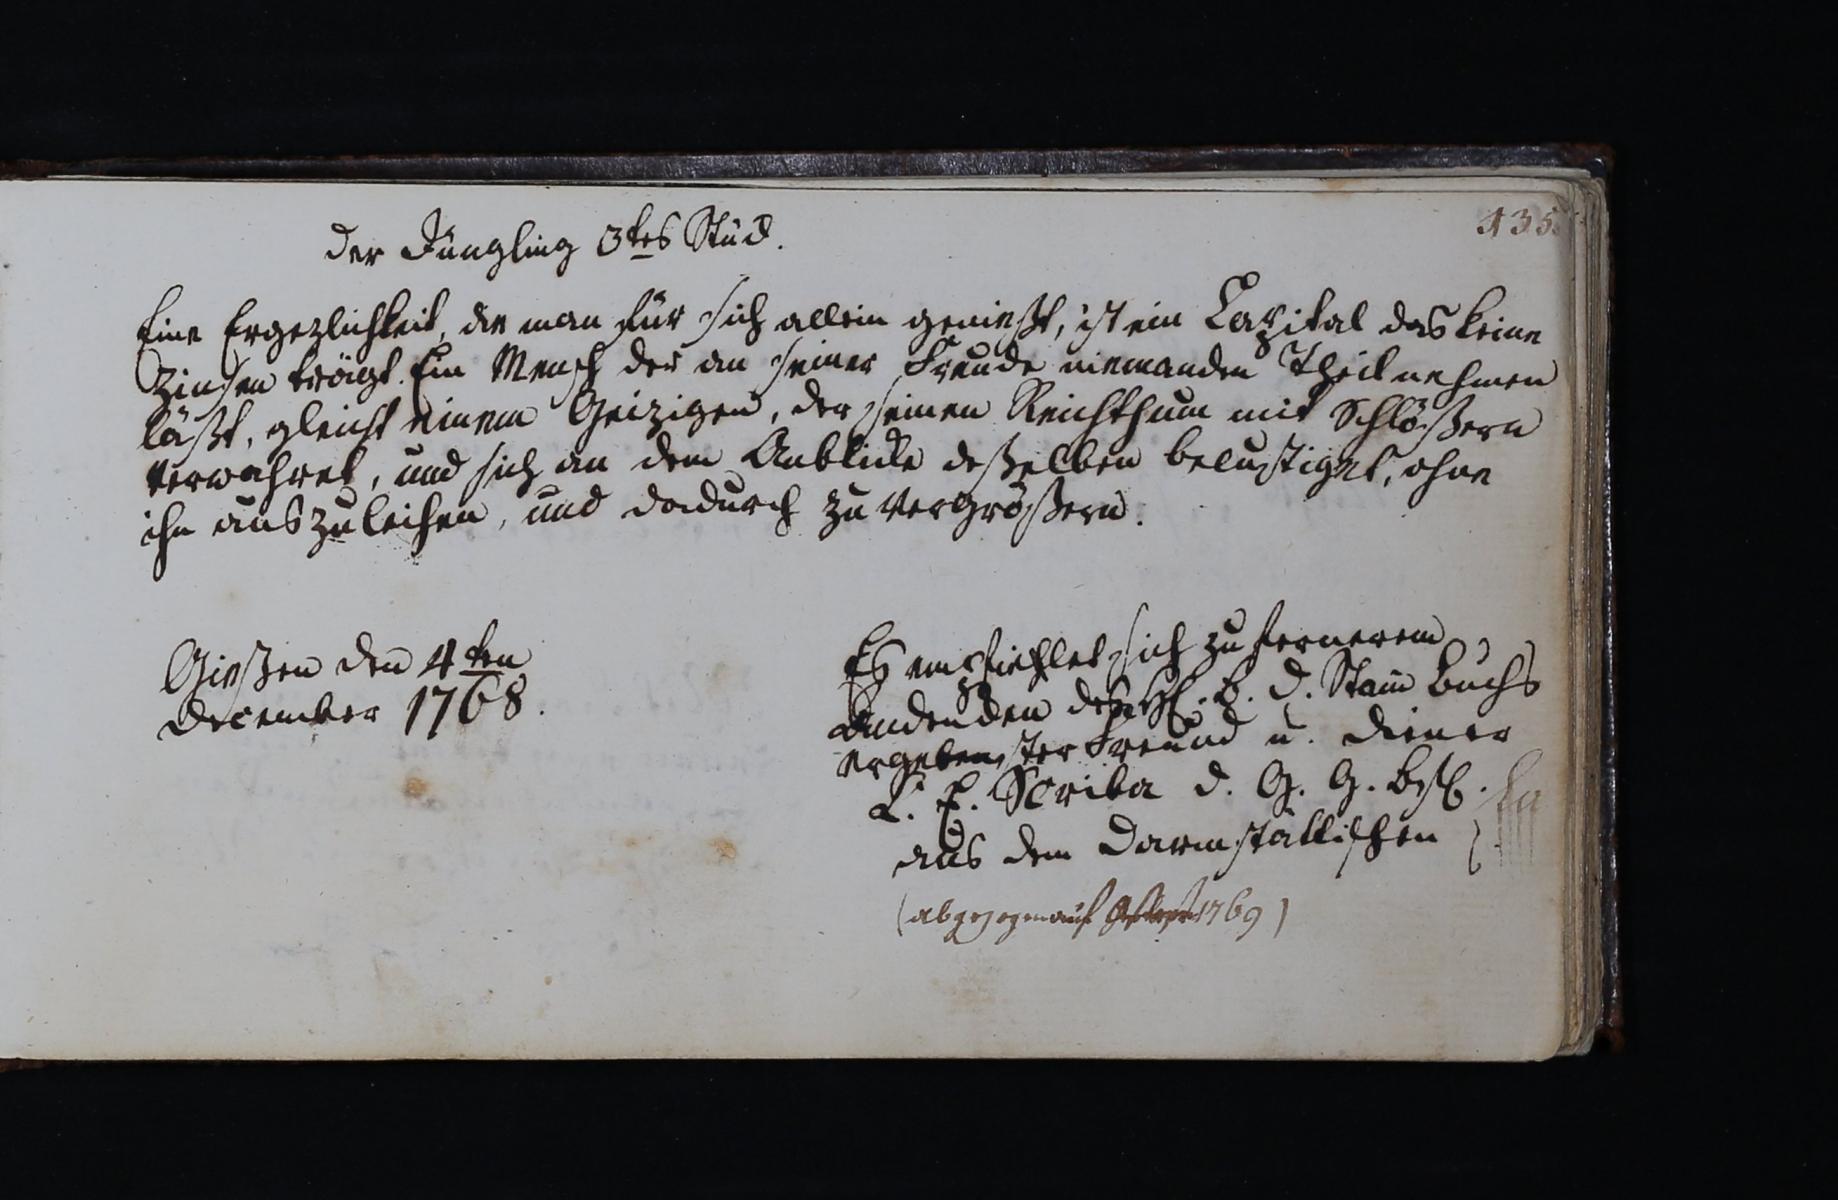 135
Der Jüngling 3tes Stück.
Eine Ergezlichkeit, die man für sich allein genießt, ist ein Capital das keine
Zinsen trägt. Ein Mensch der an seiner Freude niemanden Theil nehmen
läßt, gleicht einem Geizigen, der seinen Reichthum mit Schlößern
verwahret, und sich an dem Anblicke deßelben belustiget, ohne
ihn auszuleihen, und dadurch zu vergrößern.
Gießen den 4ten
December 1768.
Es empfiehlet sich zu fernerem
Andenken des H. B. d. Stam̄ Buchs
ergebenster Freund u. Diener
L. E. Scriba d. G. G. Befl.
aus dem Darmstättischen
(abgezogen auf 1769)